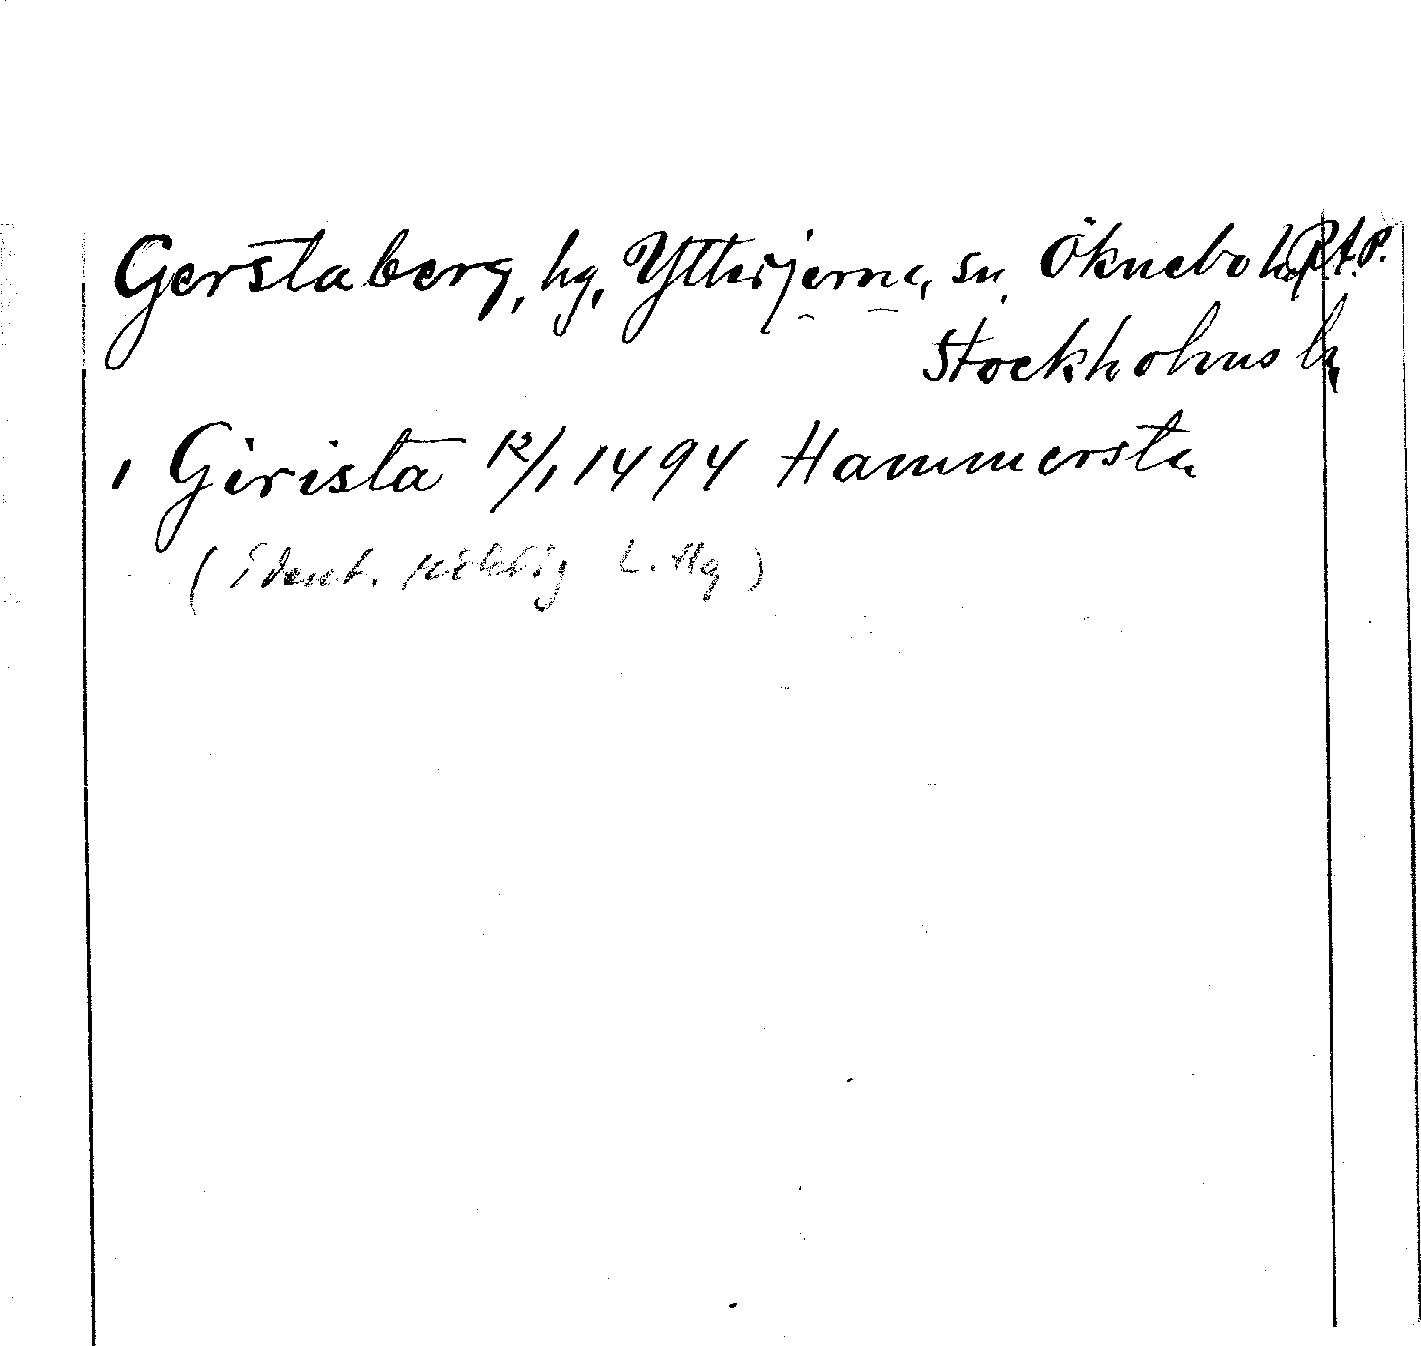 Gerstaberg, hg, Ytterjerna, sn, Öknebo h. R.A.P.
Stockholms l.
, Girista 12/1 1494 Hammersta
(ident. riktig L. Hg)